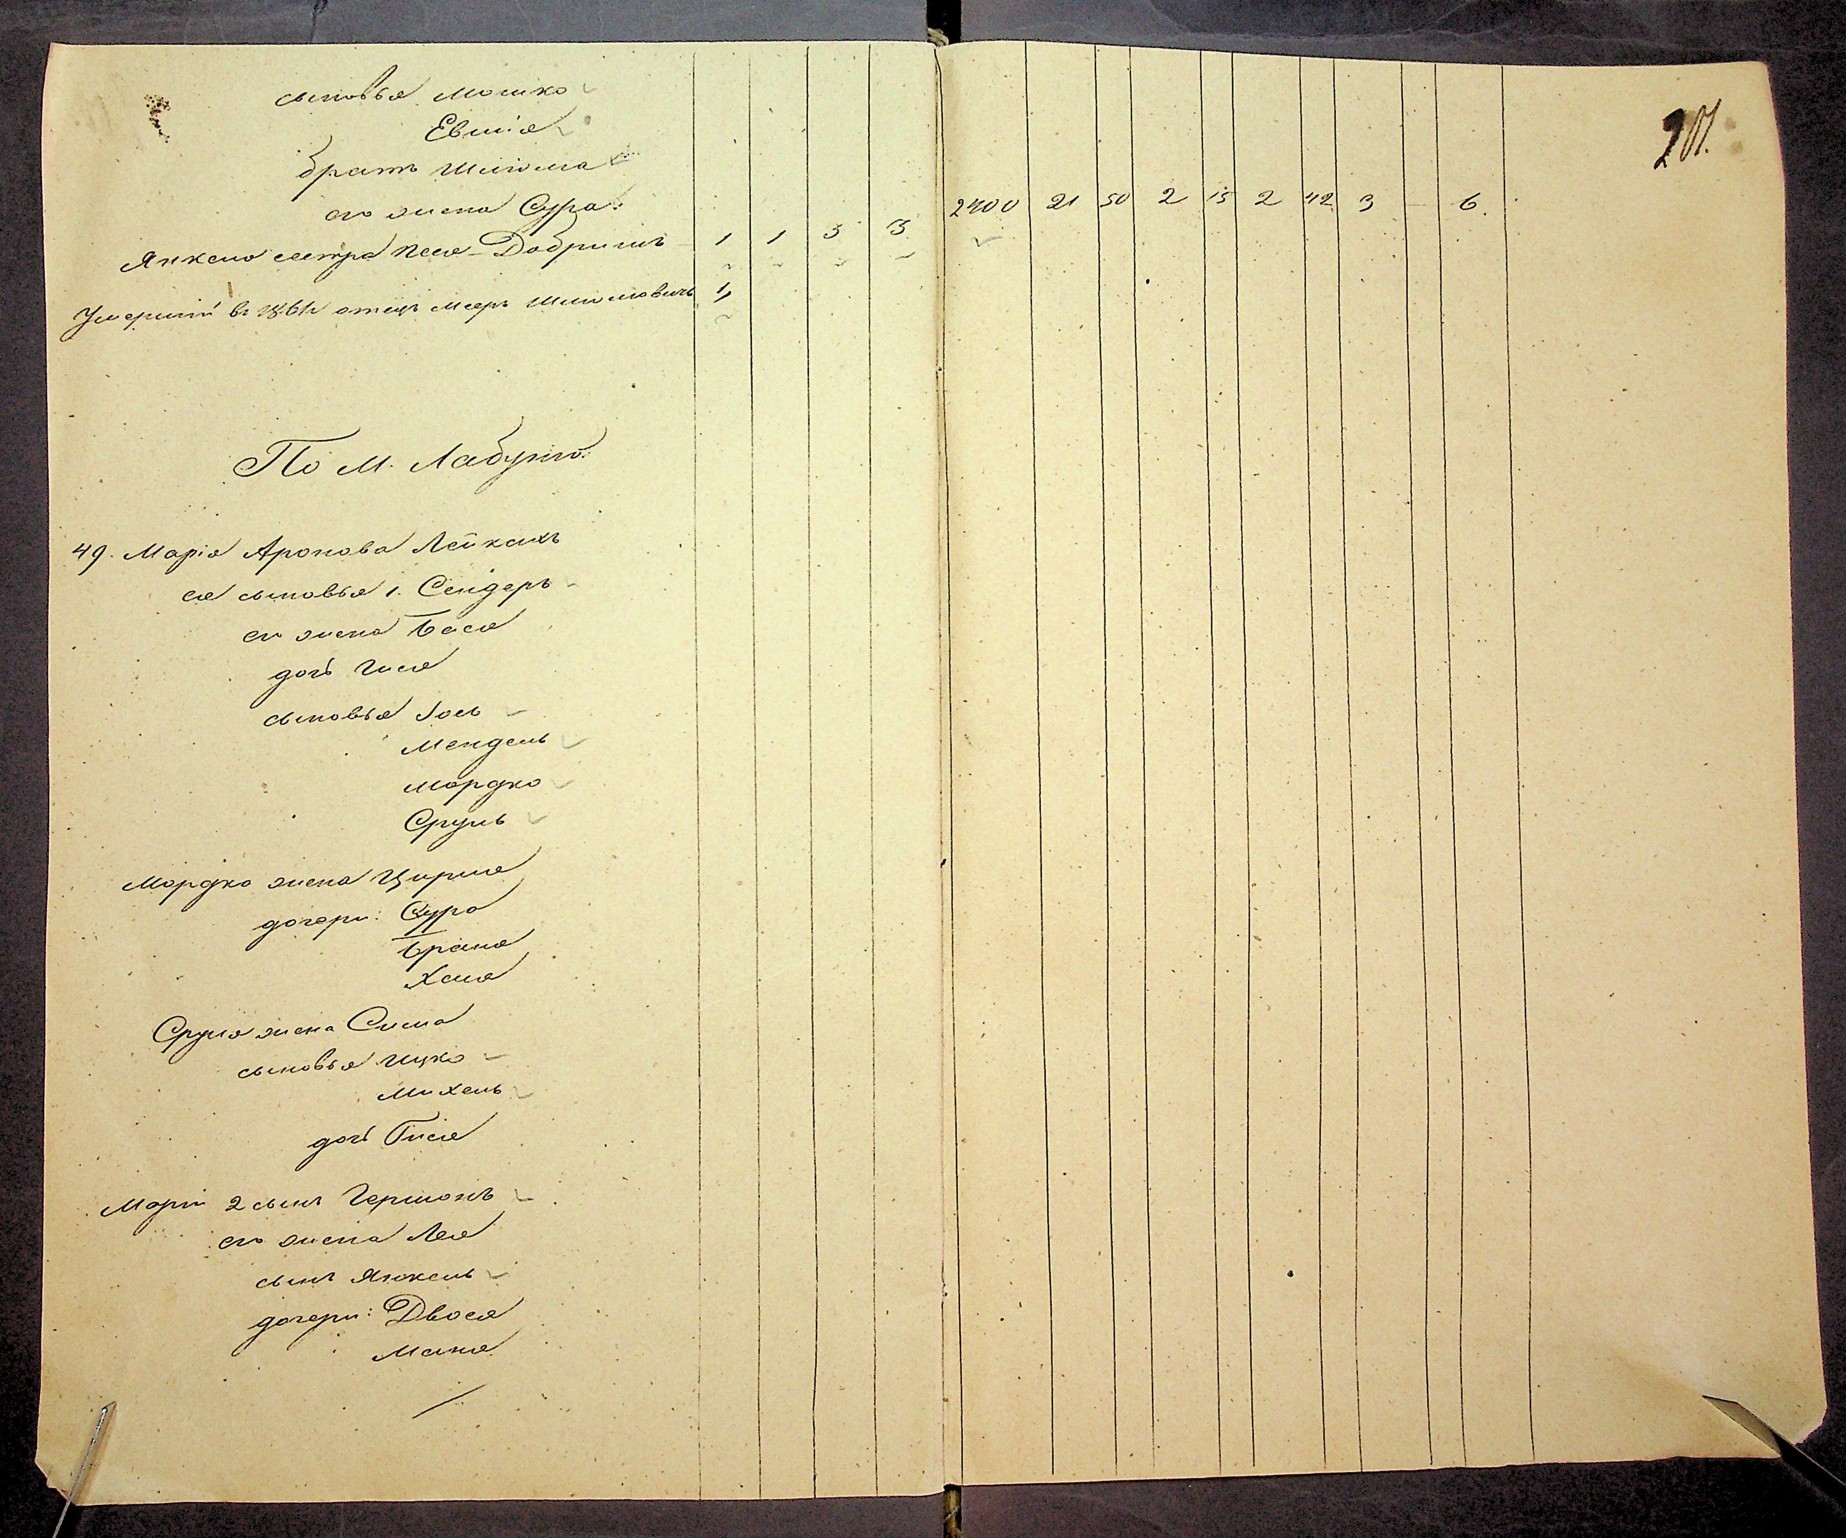 сыновья Мошко
Евшія
братъ Шліома
его жена Сура
Янкеля сестра Песя-Добришъ 1 1 3 3 2400 21 50 2 15 2 42 3 - 6
Умершій въ 1861г отецъ Мееръ Шліомовичъ 1
201.
По М. Лабуню.
49. Марія Аронова Лейкахъ
ея сыновья 1. Сендеръ
его жена Бася
дочь Гися
сыновья Іось
Мендель
Мордко
Сруль
Мордко жена Цирля
дочери: Сура
Брана
Хая
Сруля жена Сима
сыновья Ицко
Михель
дочь Гися
Маріи 2 сынъ Гершонъ
его жена Лея
сынъ Янкель
дочери: Двося
Маня